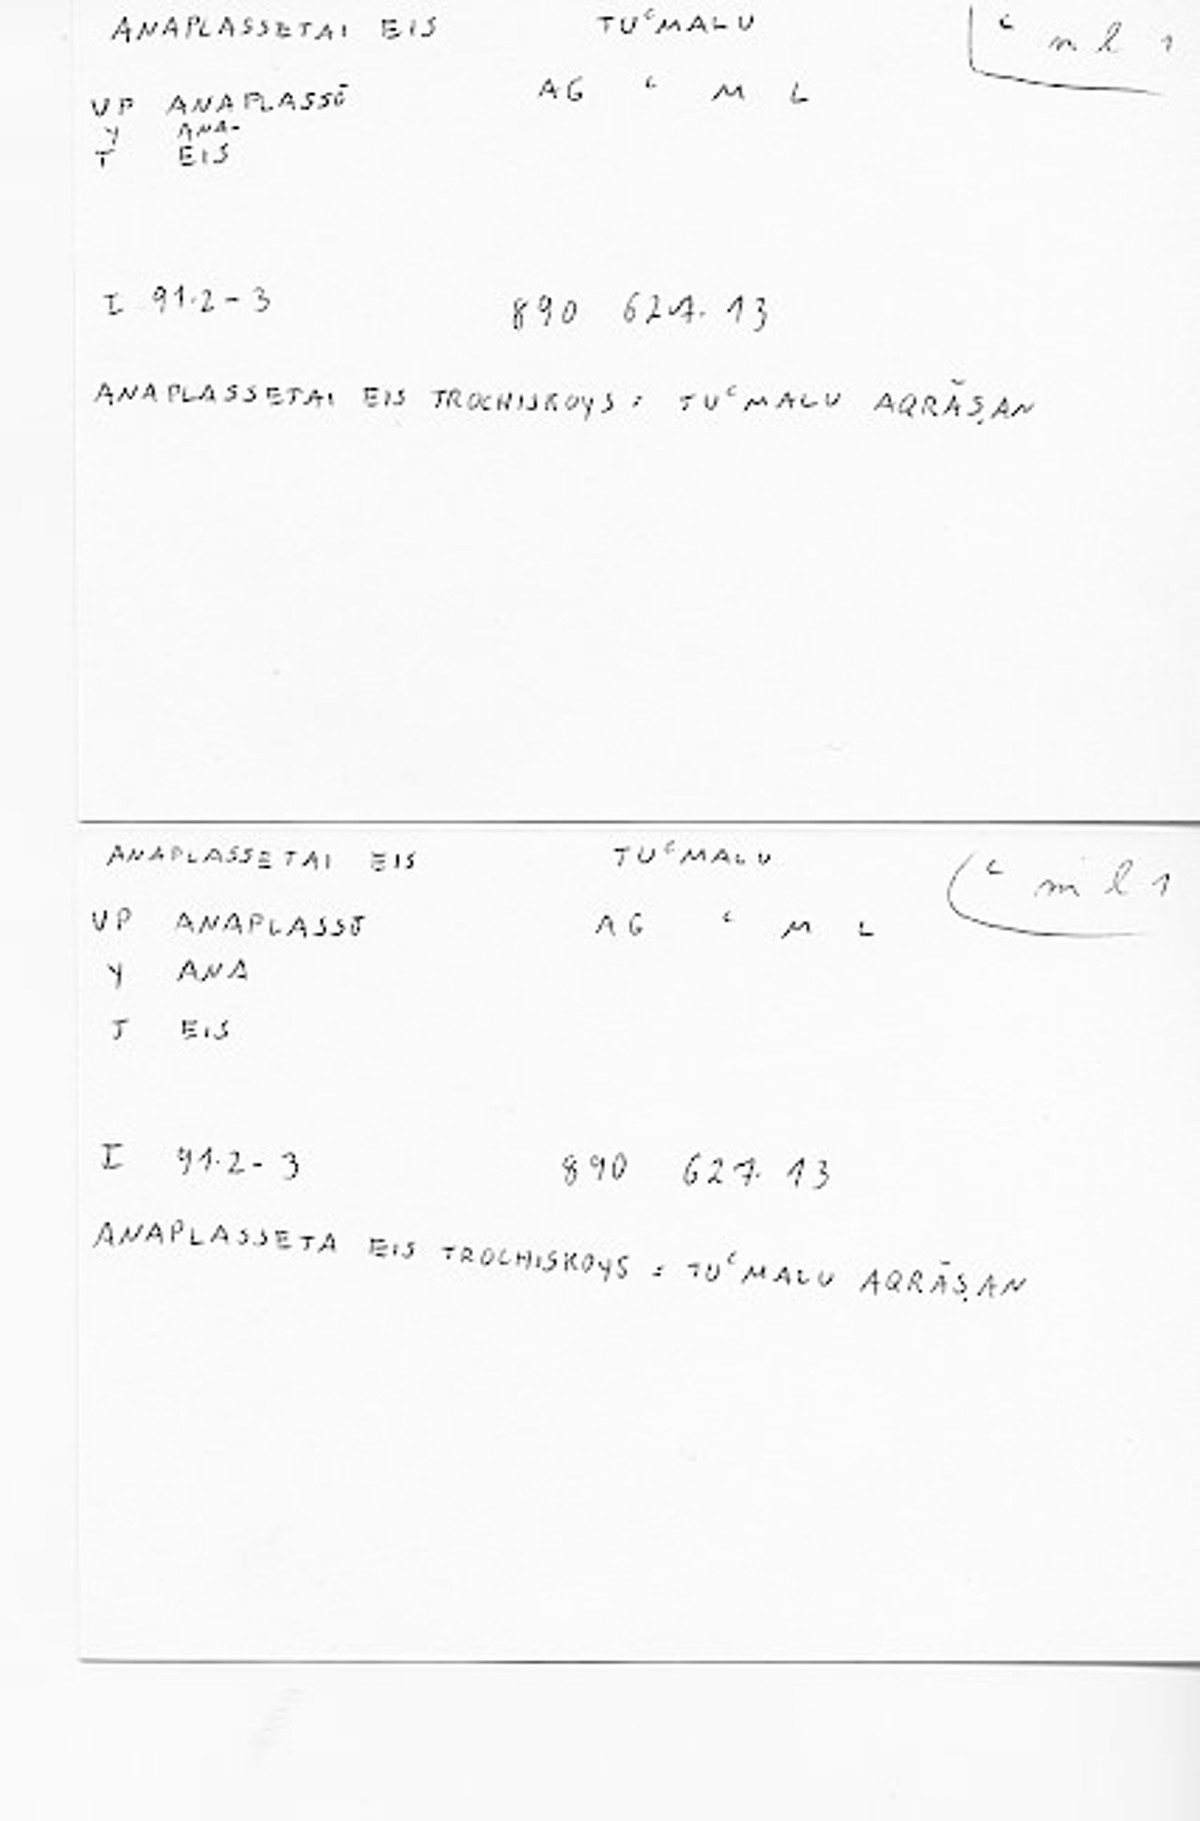 ANAPLASSETAI EIS TUᶜMALU ᶜ m l 1
VP ANAPLASSŌ AG ᶜ M L
Y ANA-
T EIS
I 91.2-3 890 627.13
ANAPLASSETAI EIS TROCHISKOYS : TUᶜMALU AQRĀṢAN
ANAPLASSETAI EIS TUᶜMALU ᶜ m l 1
VP ANAPLASSŌ AG ᶜ M L
Y ANA
T EIS
I 91.2-3 890 627.13
ANAPLASSETA EIS TROCHISKOYS : TUᶜMALU AQRĀṢAN